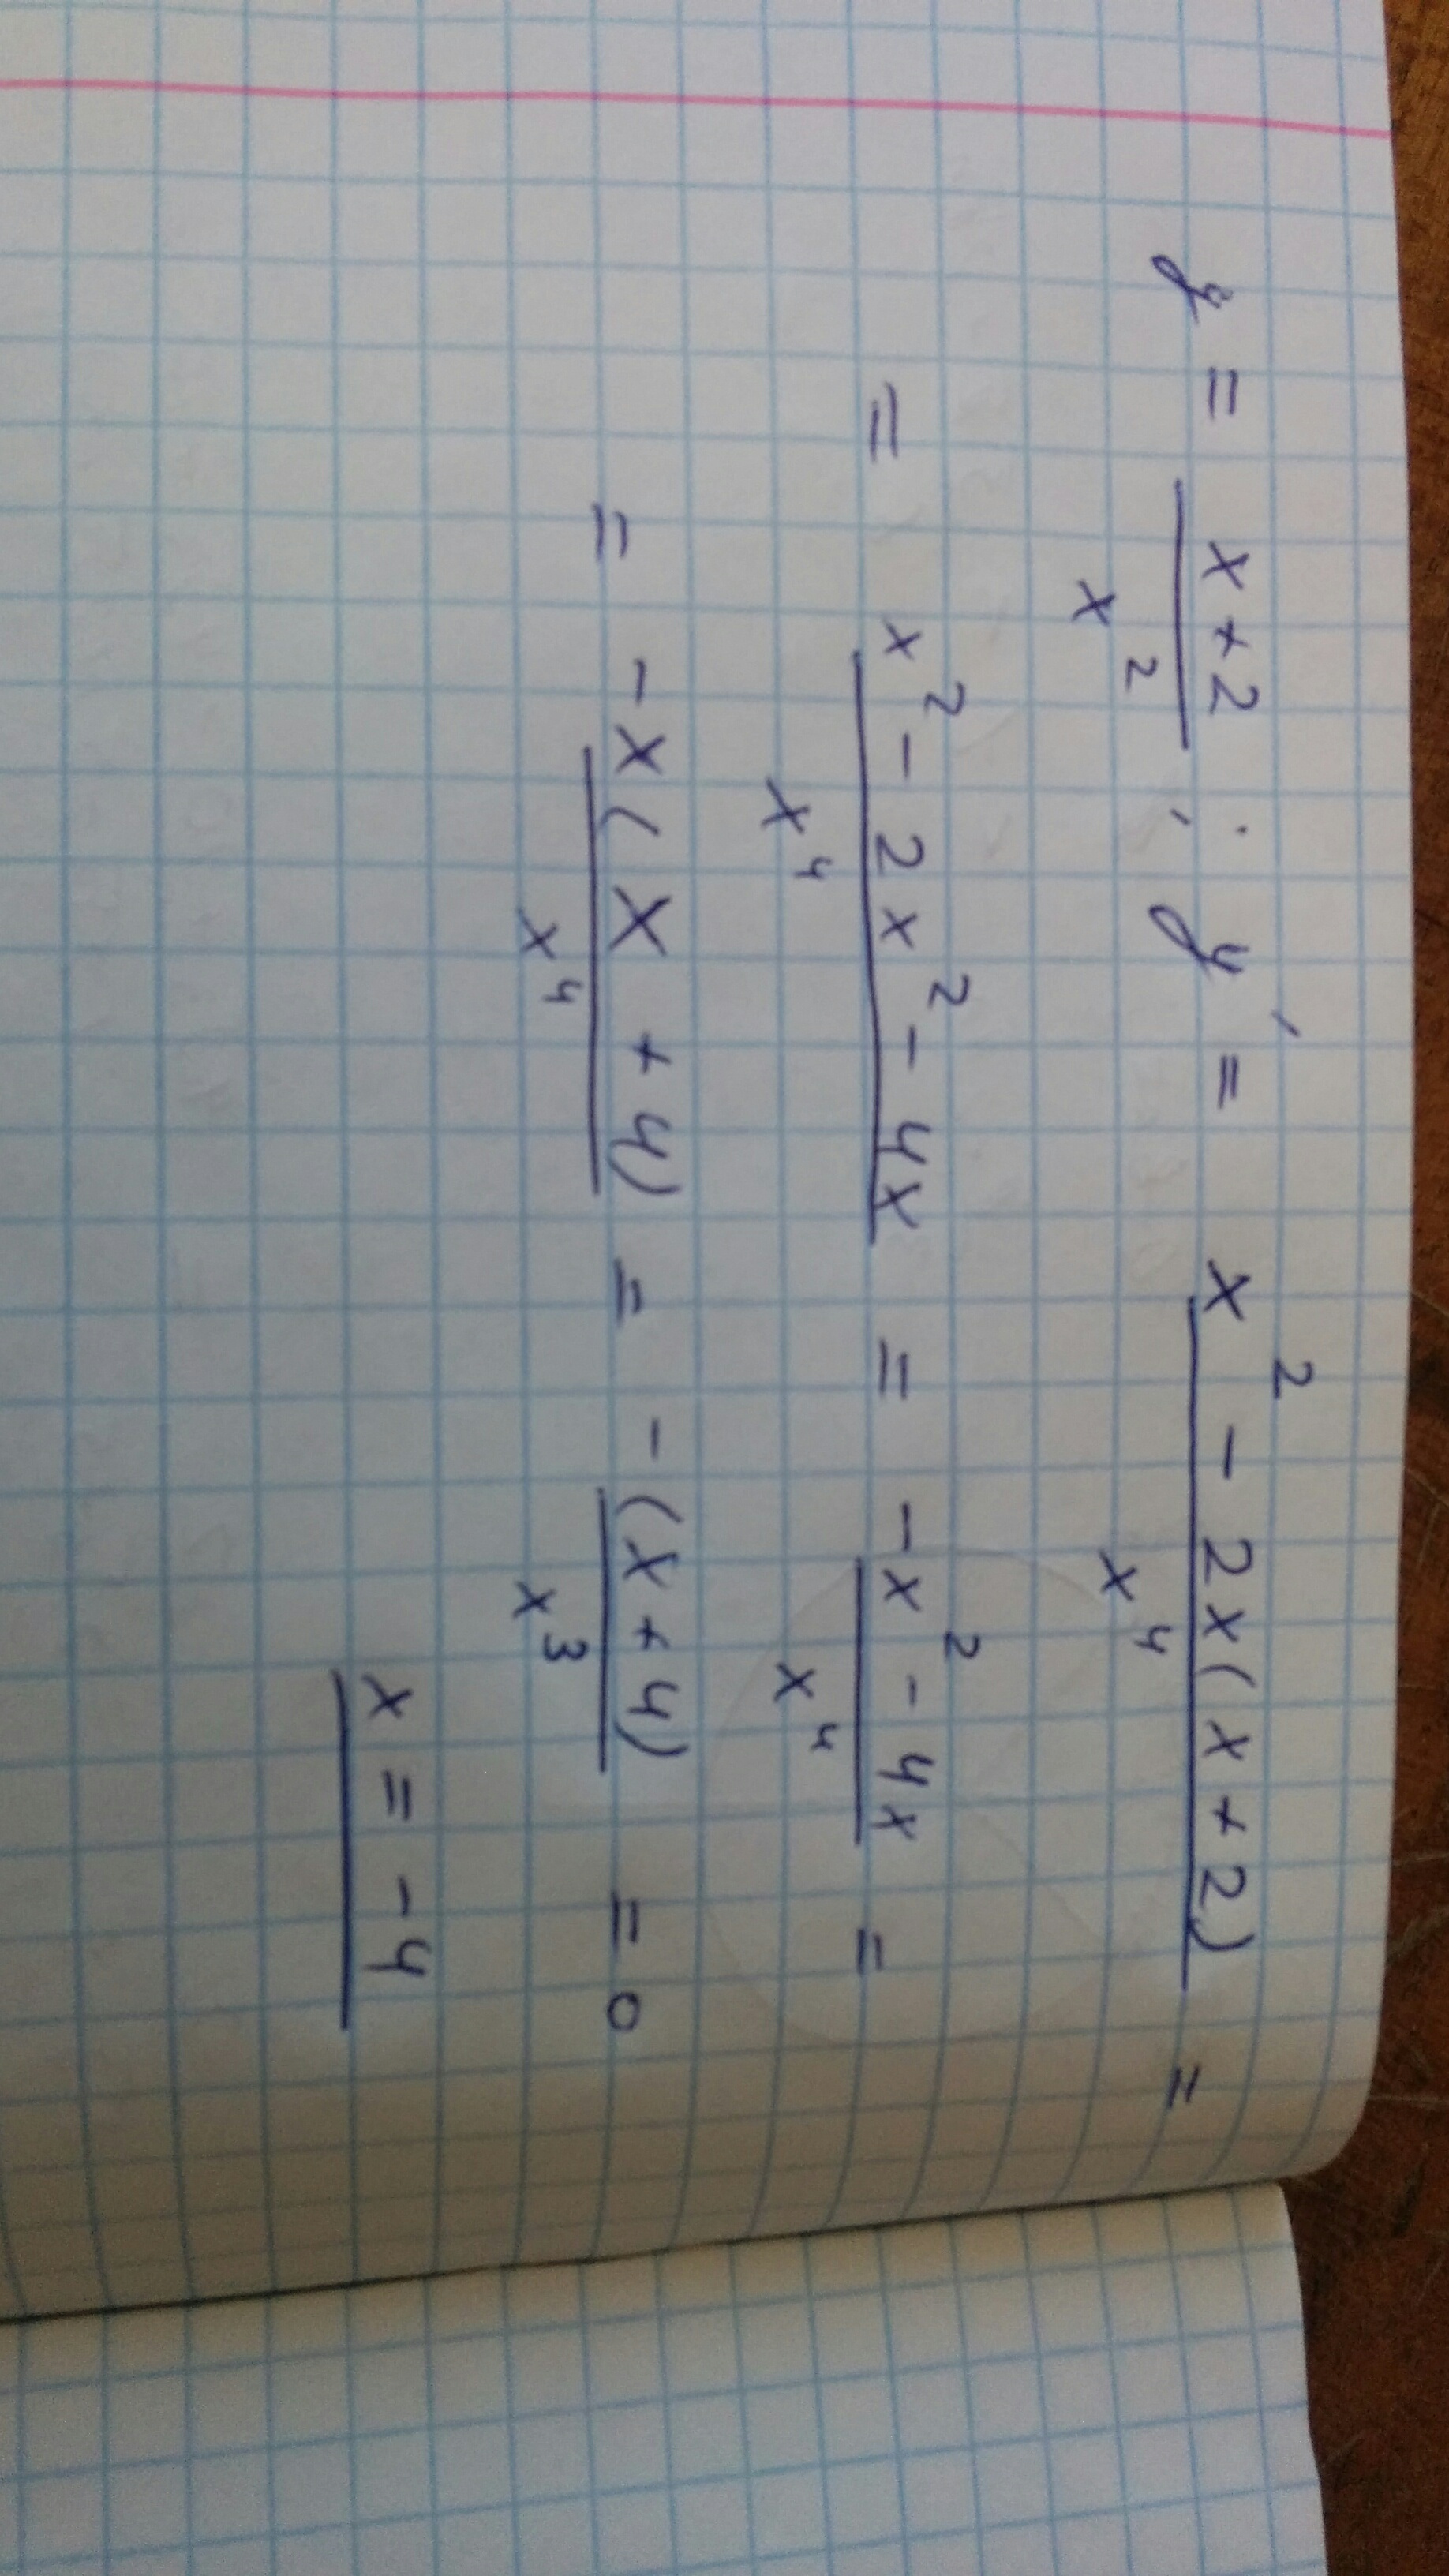 y = (x+2)/x² ; y' = (x² - 2x(x+2))/x⁴ =
= (x² - 2x² - 4x)/x⁴ = (-x² - 4x)/x⁴ =
= -x(x + 4)/x⁴ = -(x+4)/x³ = 0
x = -4